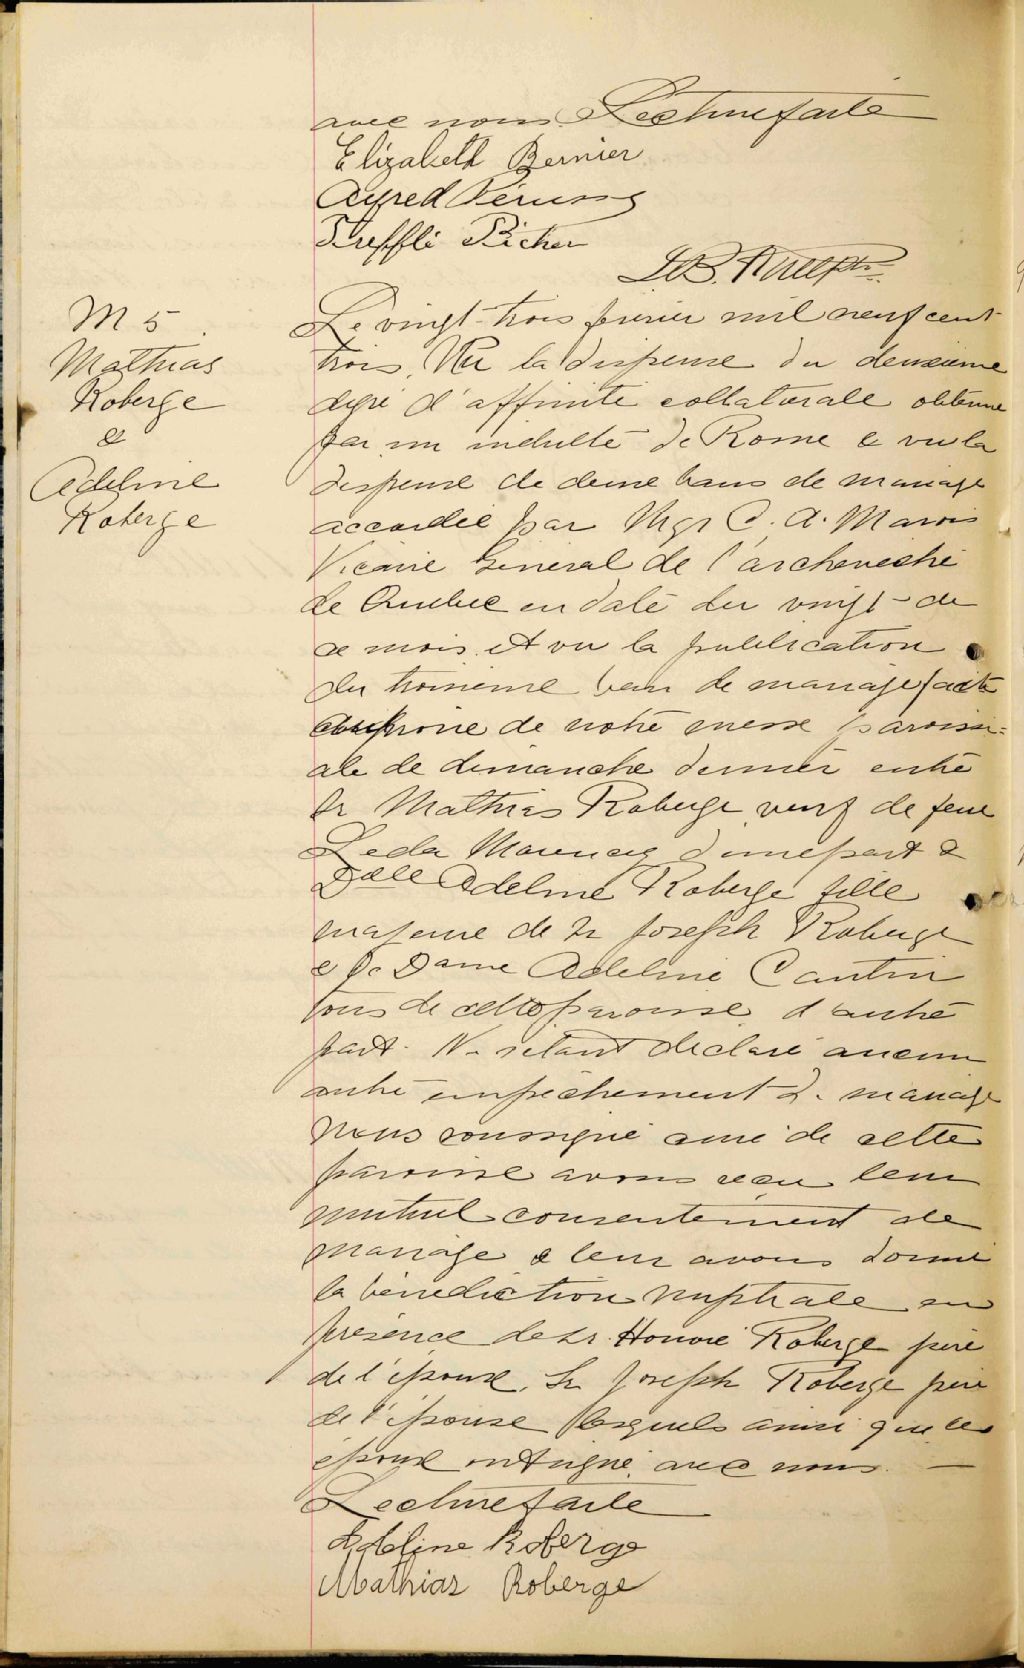 avec nous. Lecture faite
Elizabeth Bernier
Alfred Pérusse
Treffle Picher
M 5
Mathias
Roberge
&
Adeline
Roberge
Le vingt-trois février mil neuf cent
trois, Vu la dispense du deuxième
degré d'affinité collatérale obtenue
par un indulte de Rome & vu la
dispense de deux bans de mariage
accordée par Mgr C. A. Marois
Vicaire Général de l'archevêché
de Québec en date du vingt de
ce mois et vu la publication
du troisième ban de mariage faite
au prône de notre messe paroissi=
ale de dimanche dernier entre
Sr Mathias Roberge veuf de feue
Léda d'une part &
Delle Adeline Roberge fille
majeure de Sr Joseph Roberge
& de Dame Adeline Cantin
tous de cette paroisse d'autre
part. Ne s'étant déclaré aucun
autre empêchement de mariage
Nous soussigné curé de cette
paroisse avons reçu leur
mutuel consentement de
mariage & leur avons donné
la bénédiction nuptiale en
présence de Sr. Honoré Roberge père
de l'époux, Sr Joseph Roberge père
de l'épouse lesquels ainsi que les
époux ont signé avec nous. —
Lecture faite
Adeline Roberge
Mathias Roberge